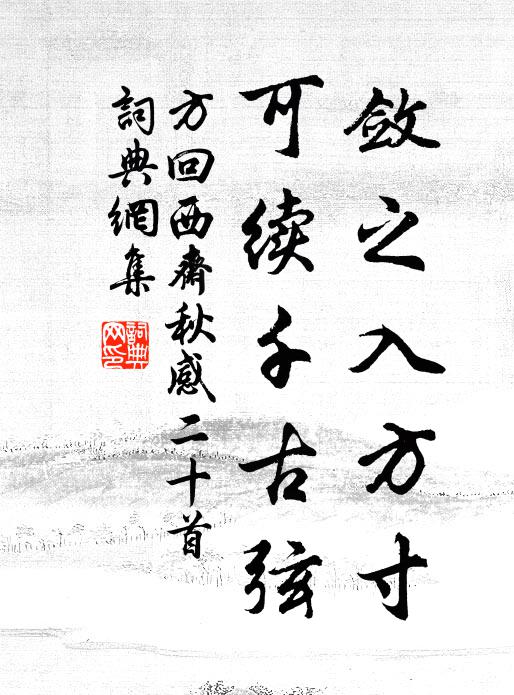 斂之入方寸
可续千古弦
方回西齋秋感二十首
詞典網集
詞典網印